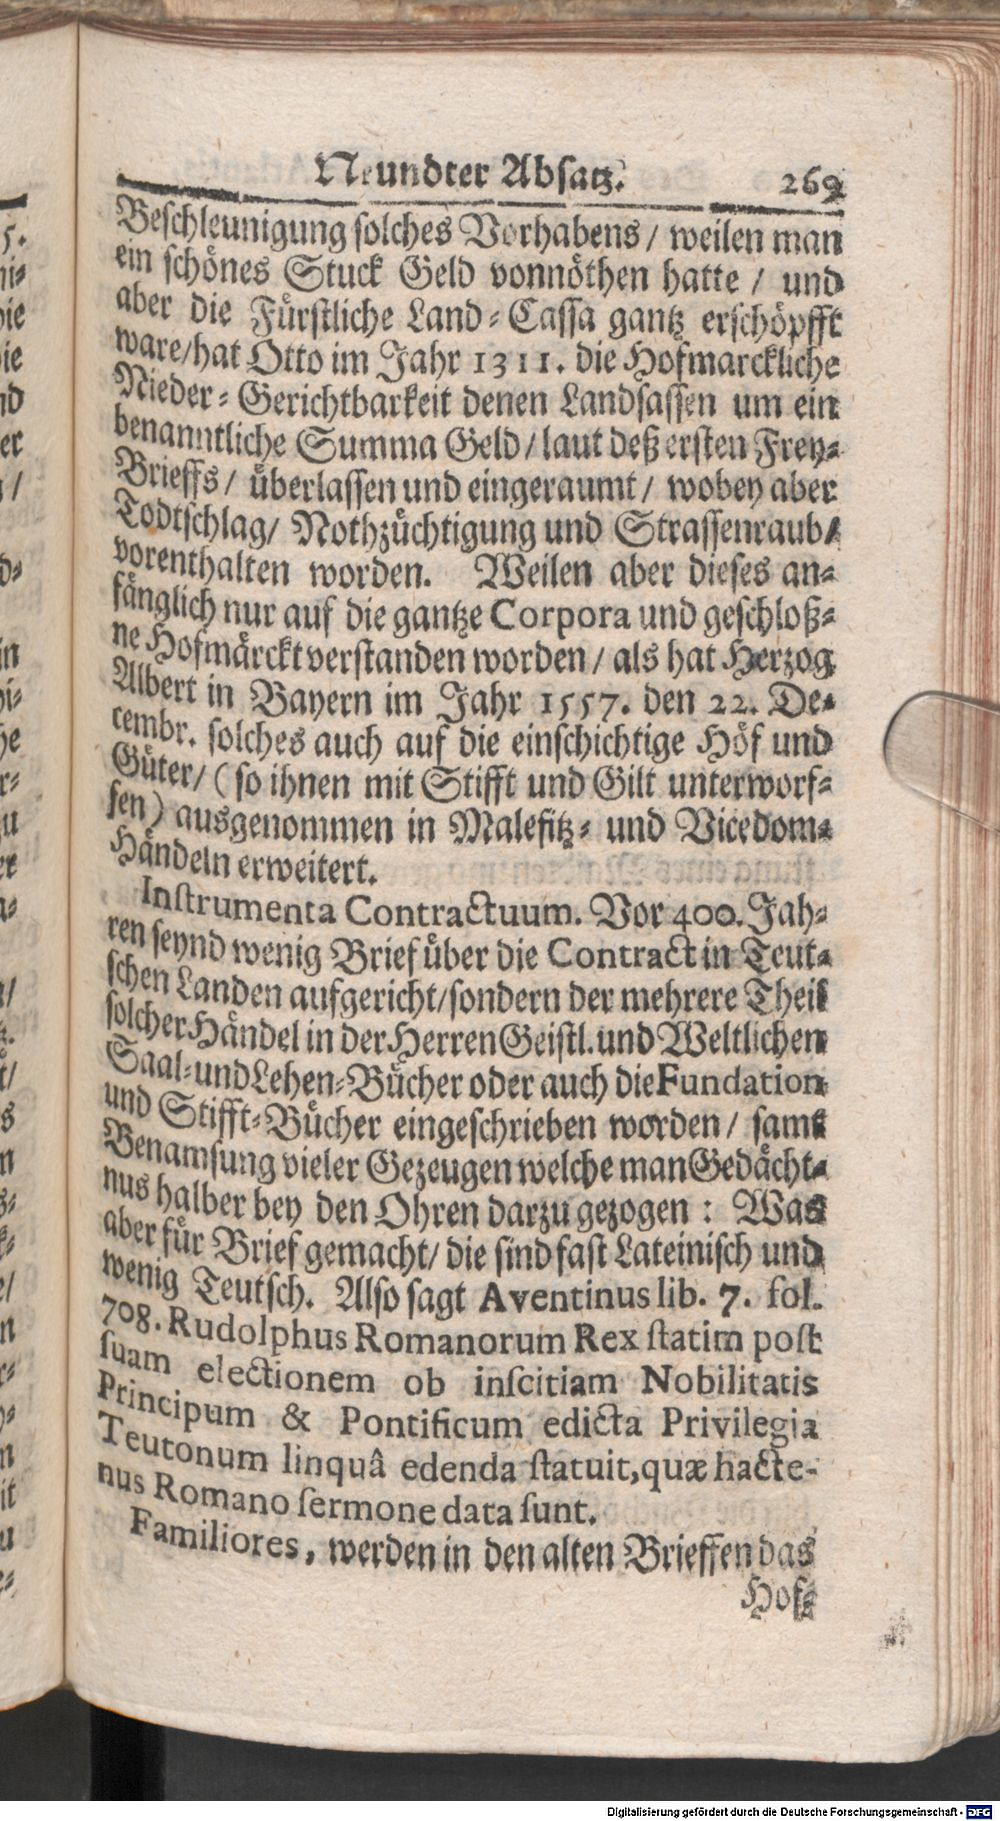 Neundter Absatz. 269
Beschleunigung solches Vorhabens / weilen man
ein schönes Stuck Geld vonnöthen hatte / und
aber die Fürstliche Land-Cassa gantz erschöpfft
ware/hat Otto im Jahr 1311. die Hofmarckliche
Nieder-Gerichtbarkeit denen Landsassen um ein
benanntliche Summa Geld / laut deß ersten Frey-
Brieffs / überlassen und eingeraumt / wobey aber
Todtschlag/ Nothzüchtigung und Strassenraub/
vorenthalten worden. Weilen aber dieses an-
fänglich nur auf die gantze Corpora und geschloß-
ne Hofmärckt verstanden worden / als hat Herzog
Albert in Bayern im Jahr 1557. den 22. De-
cembr. solches auch auf die einschichtige Höf und
Güter/ (so ihnen mit Stifft und Gilt unterworf-
fen) ausgenommen in Malefitz- und Vicedom-
Händeln erweitert.
Instrumenta Contractuum. Vor 400. Jah-
ren seynd wenig Brief über die Contract in Teut-
schen Landen aufgericht/sondern der mehrere Theil
solcher Händel in der Herren Geistl. und Weltlichen
Saal-und Lehen-Bücher oder auch die Fundation
und Stifft-Bücher eingeschrieben worden / samt
Benamsung vieler Gezeugen welche man Gedächt-
nus halber bey den Ohren darzu gezogen : Was
aber für Brief gemacht/ die sind fast Lateinisch und
wenig Teutsch. Also sagt Aventinus lib. 7. fol.
708. Rudolphus Romanorum Rex statim post
suam electionem ob inscitiam Nobilitatis
Principum & Pontificum edicta Privilegia
Teutonum linquâ edenda statuit, quæ hacte-
nus Romano sermone data sunt.
Familiores, werden in den alten Brieffen das
Hof-
Digitalisierung gefördert durch die Deutsche Forschungsgemeinschaft - DFG